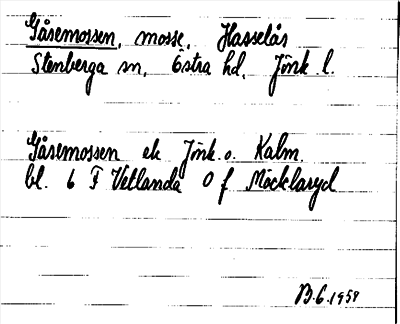 Gåsemossen, mosse, Hasselås
Stenberga sn, Östra hd, Jönk l.
Gåsemossen ek Jönk. o. Kalm.
bl. 6 F Vetlanda O f Möcklaryd
B.G. 1958